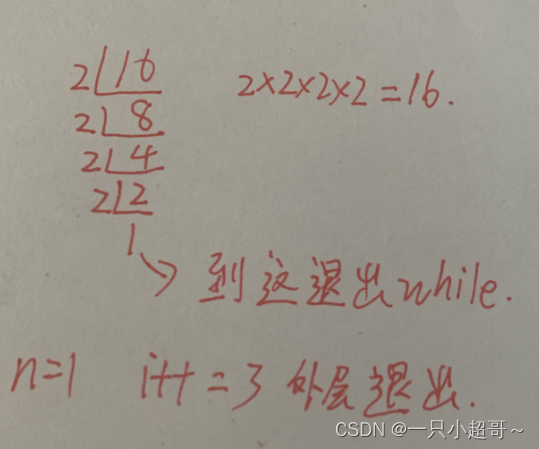 2 16 2×2×2×2=16.
2 8
2 4
2 2
1
到这退出while.
n=1 i++=3 外层退出.
CSDN @一只小超哥～